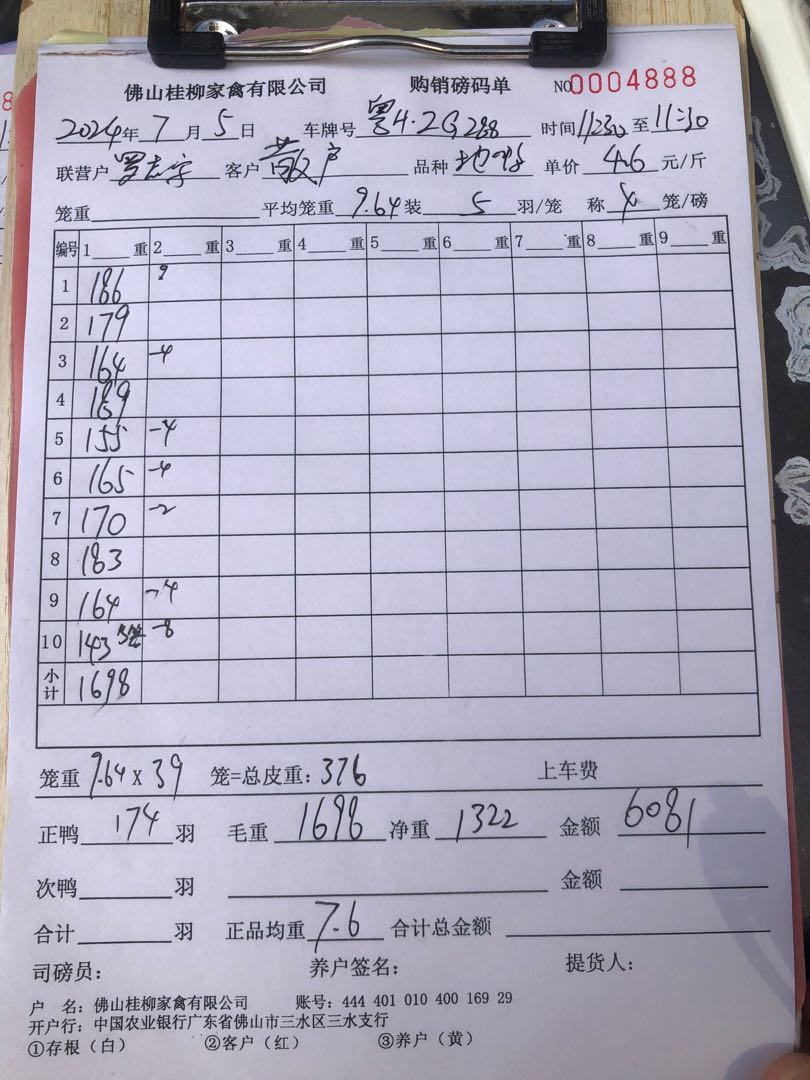 佛山桂柳家禽有限公司 购销磅码单 NO 0004888
2024年 7 月 5 日 车牌号 粤4·2G288 时间 11230 至 11:30
联营户 罗志宇 客户 散户 品种 单价 4.6 元/斤
笼重 平均笼重 9.64 装 5 羽/笼 称 4 笼/磅
编号 1 重 2 重 3 重 4 重 5 重 6 重 7 重 8 重 9 重
1 186 9
2 179
3 164 -4
4 189
5 155 -4
6 165 -4
7 170 -2
8 183
9 164 -4
10 143 3笼 -8
小计 1698
笼重 9.64 x 39 笼=总皮重: 376 上车费
正鸭 174 羽 毛重 1698 净重 1322 金额 6081
次鸭 羽 金额
合计 羽 正品均重 7.6 合计总金额
司磅员: 养户签名: 提货人:
户 名: 佛山桂柳家禽有限公司 账号: 444 401 010 400 169 29
开户行: 中国农业银行广东省佛山市三水区三水支行
①存根(白) ②客户(红) ③养户(黄)